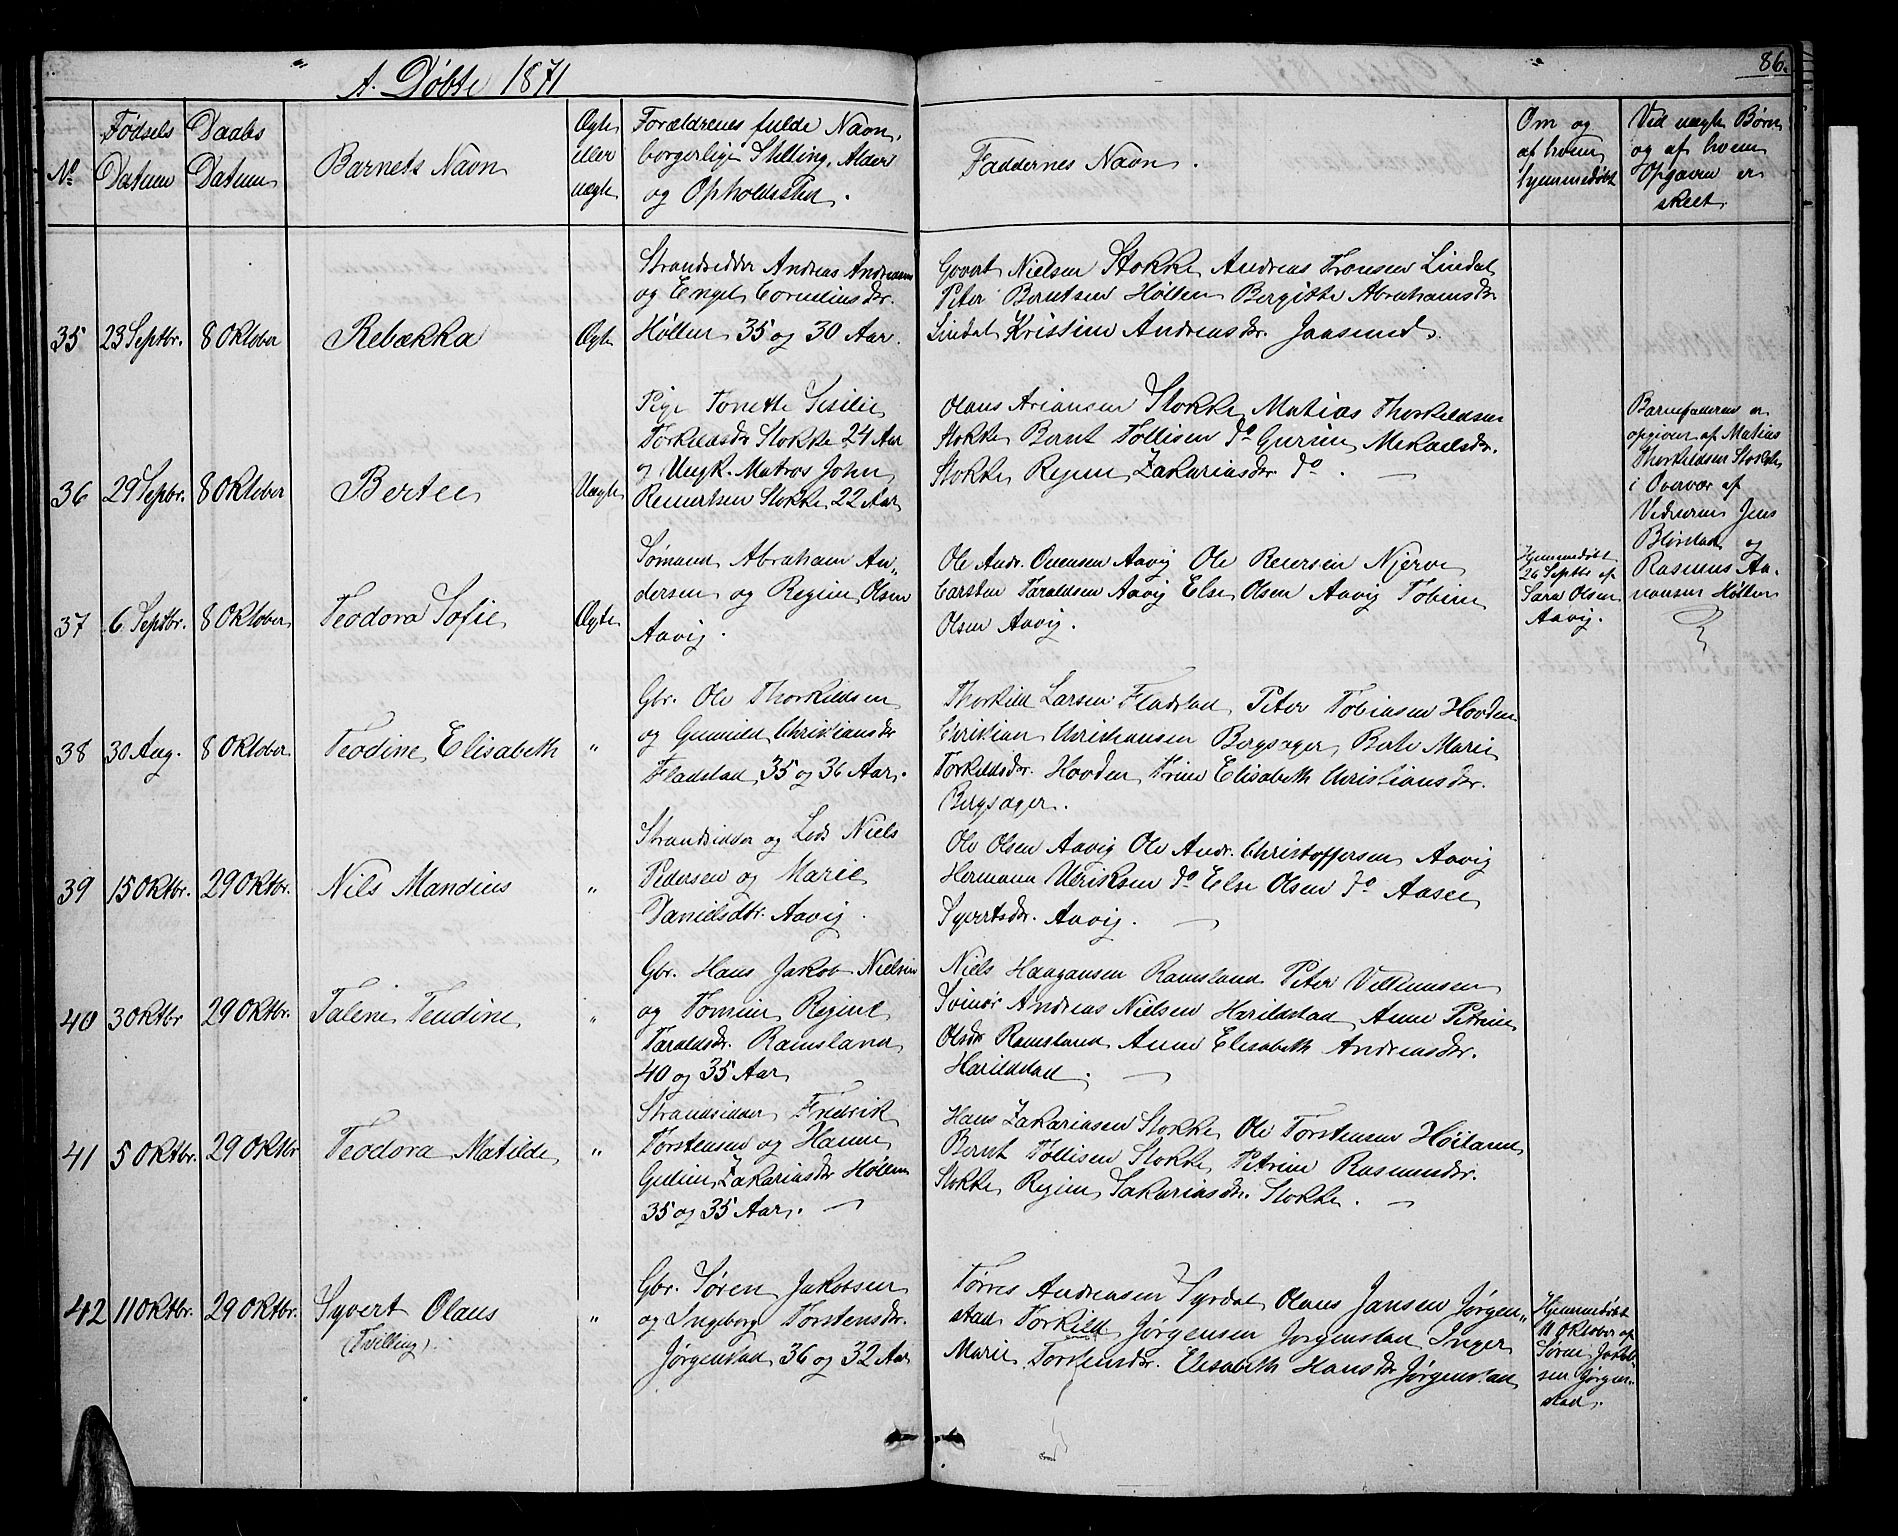 A. Døbte 1871
86.
No
Fødsels Datum
Daabs Datum
Barnets Navn
Ægte eller uægte
Forældrenes fulde Navn, borgerlige Stilling, Alder og Opholdssted.
Faddernes Navn.
Om og af hvem hjemmedøbt
Ved uægte Børn og af hvem Opgaven er skeet.
35 23 Septbr. 8 Oktober Rebækka Ægte
Strandsidder Andreas Andreasen
og Engel Corneliusdr.
Høllen 35 og 30 Aar.
Govert Nielsen Stokke Andreas Tronsen Lindal
Peter Berntsen Høllen Bergitte Abrahamsdr
Lindal Kristine Andreasdr. Jaasund.
36 29 Septbr. 8 Oktober Bertee Uægte
Pige Tonette Sesilie
Torkildsdr Stokke 24 Aar
og Ungk. Matros John
Reinertsen Stokke 22 Aar
Olaus Ariansen Stokke Matias Thorkildsen
Stokke Bernt Tollisen do Gurine Mekaelsdr.
Stokke Regine Zakariasdr. do. —
Barnefaderen er
opgiven af Matias
Thorkildsen Stokke
i Overvær af
Vidnerne Jens
og
Rasmus Aa-
nensen Høllen
37 6 Septbr. 8 Oktober Teodora Sofie Ægte
Sømand Abraham An-
dersen og Regine Olsen
Aavig.
Ole Andr. Evensen Aavig Ole Reiersen Njerve
Carsten Taraldsen Aavig Else Olsen Aavig Tobine
Olsen Aavig.
Hjemmedøbt
26 Septbr af
Sara Olsen
Aavig.
38 30 Aug. 8 Oktober Teodine Elisabeth "
Gbr. Ole Thorkildsen
og Gunild Christiansdr
Fladstad 35 og 36 Aar.
Thorkild Larsen Fladstad, Peter Tobiasen Hovden
Christian Christiansen Bergsager, Berte Marie
Torkildsdr. Hovden, Trine Elisabeth Christiansdr.
Bergsager.
39 15 Oktbr. 29 Oktbr. Nils Mandius "
Strandsidder og Lods Niels
Pedersen og Marie
Danielsdtr. Aavig.
Ole Olsen Aavig Ole Andr. Christoffersen Aavig
Hermann Ulriksen do Else Olsen do Aasee
Syvertsdr. Aavig. —
40 3 Oktbr 29 Oktbr. Talene Teudine "
Gbr. Hans Jakob Nielsen
og Tomine Regine
Taraldsdr. Ramsland
40 og 35 Aar
Niels Haagansen Ramsland Peter Villumsen
Svinør Andreas Nielsen Harildstad, Anne Petrine
Olsdr Ramsland Anne Elisabeth Andreasdr.
Harildstad. —
41 5 Oktbr. 29 Oktbr Teodora Matilde "
Strandsidder Fredrik
Torstensen og Hanne
Gurine Zakariasdr Høllen
35 og 35 Aar. —
Hans Zakariasen Stokke Ole Torstensen Høiland
Bernt Tollisen Stokke Petrine Rasmusdr.
Stokke Regine Sakariasdr. Stokke. —
42 11 Oktbr. 29 Oktbr. Syvert Olaus "
(Tvilling).
Gbr. Søren Jakobsen
og Ingeborg Torstensdr.
Jørgenstad 36 og 32 Aar
Tørres Andreasen Syrdal Olaus Jansen Jørgen-
stad Torkild Jørgensen Jørgenstad Inger
Marie Torstensdr. Elisabeth Hansdr Jørgenstad
Hjemmedøbt
11 Oktober af
Søren Jakob-
sen Jørgen-
stad.